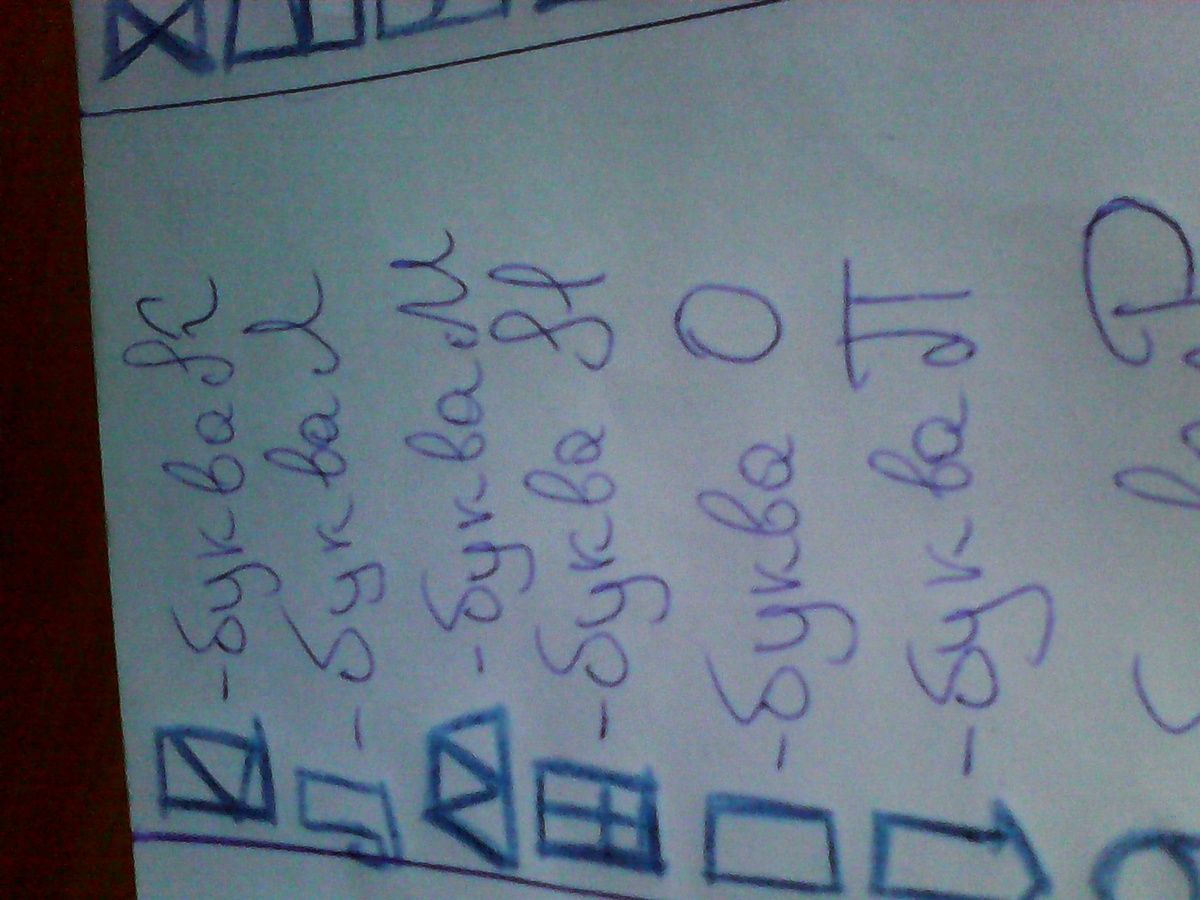 - буква К
- буква Л
- буква М
- буква Н
- буква О
- буква П
Р